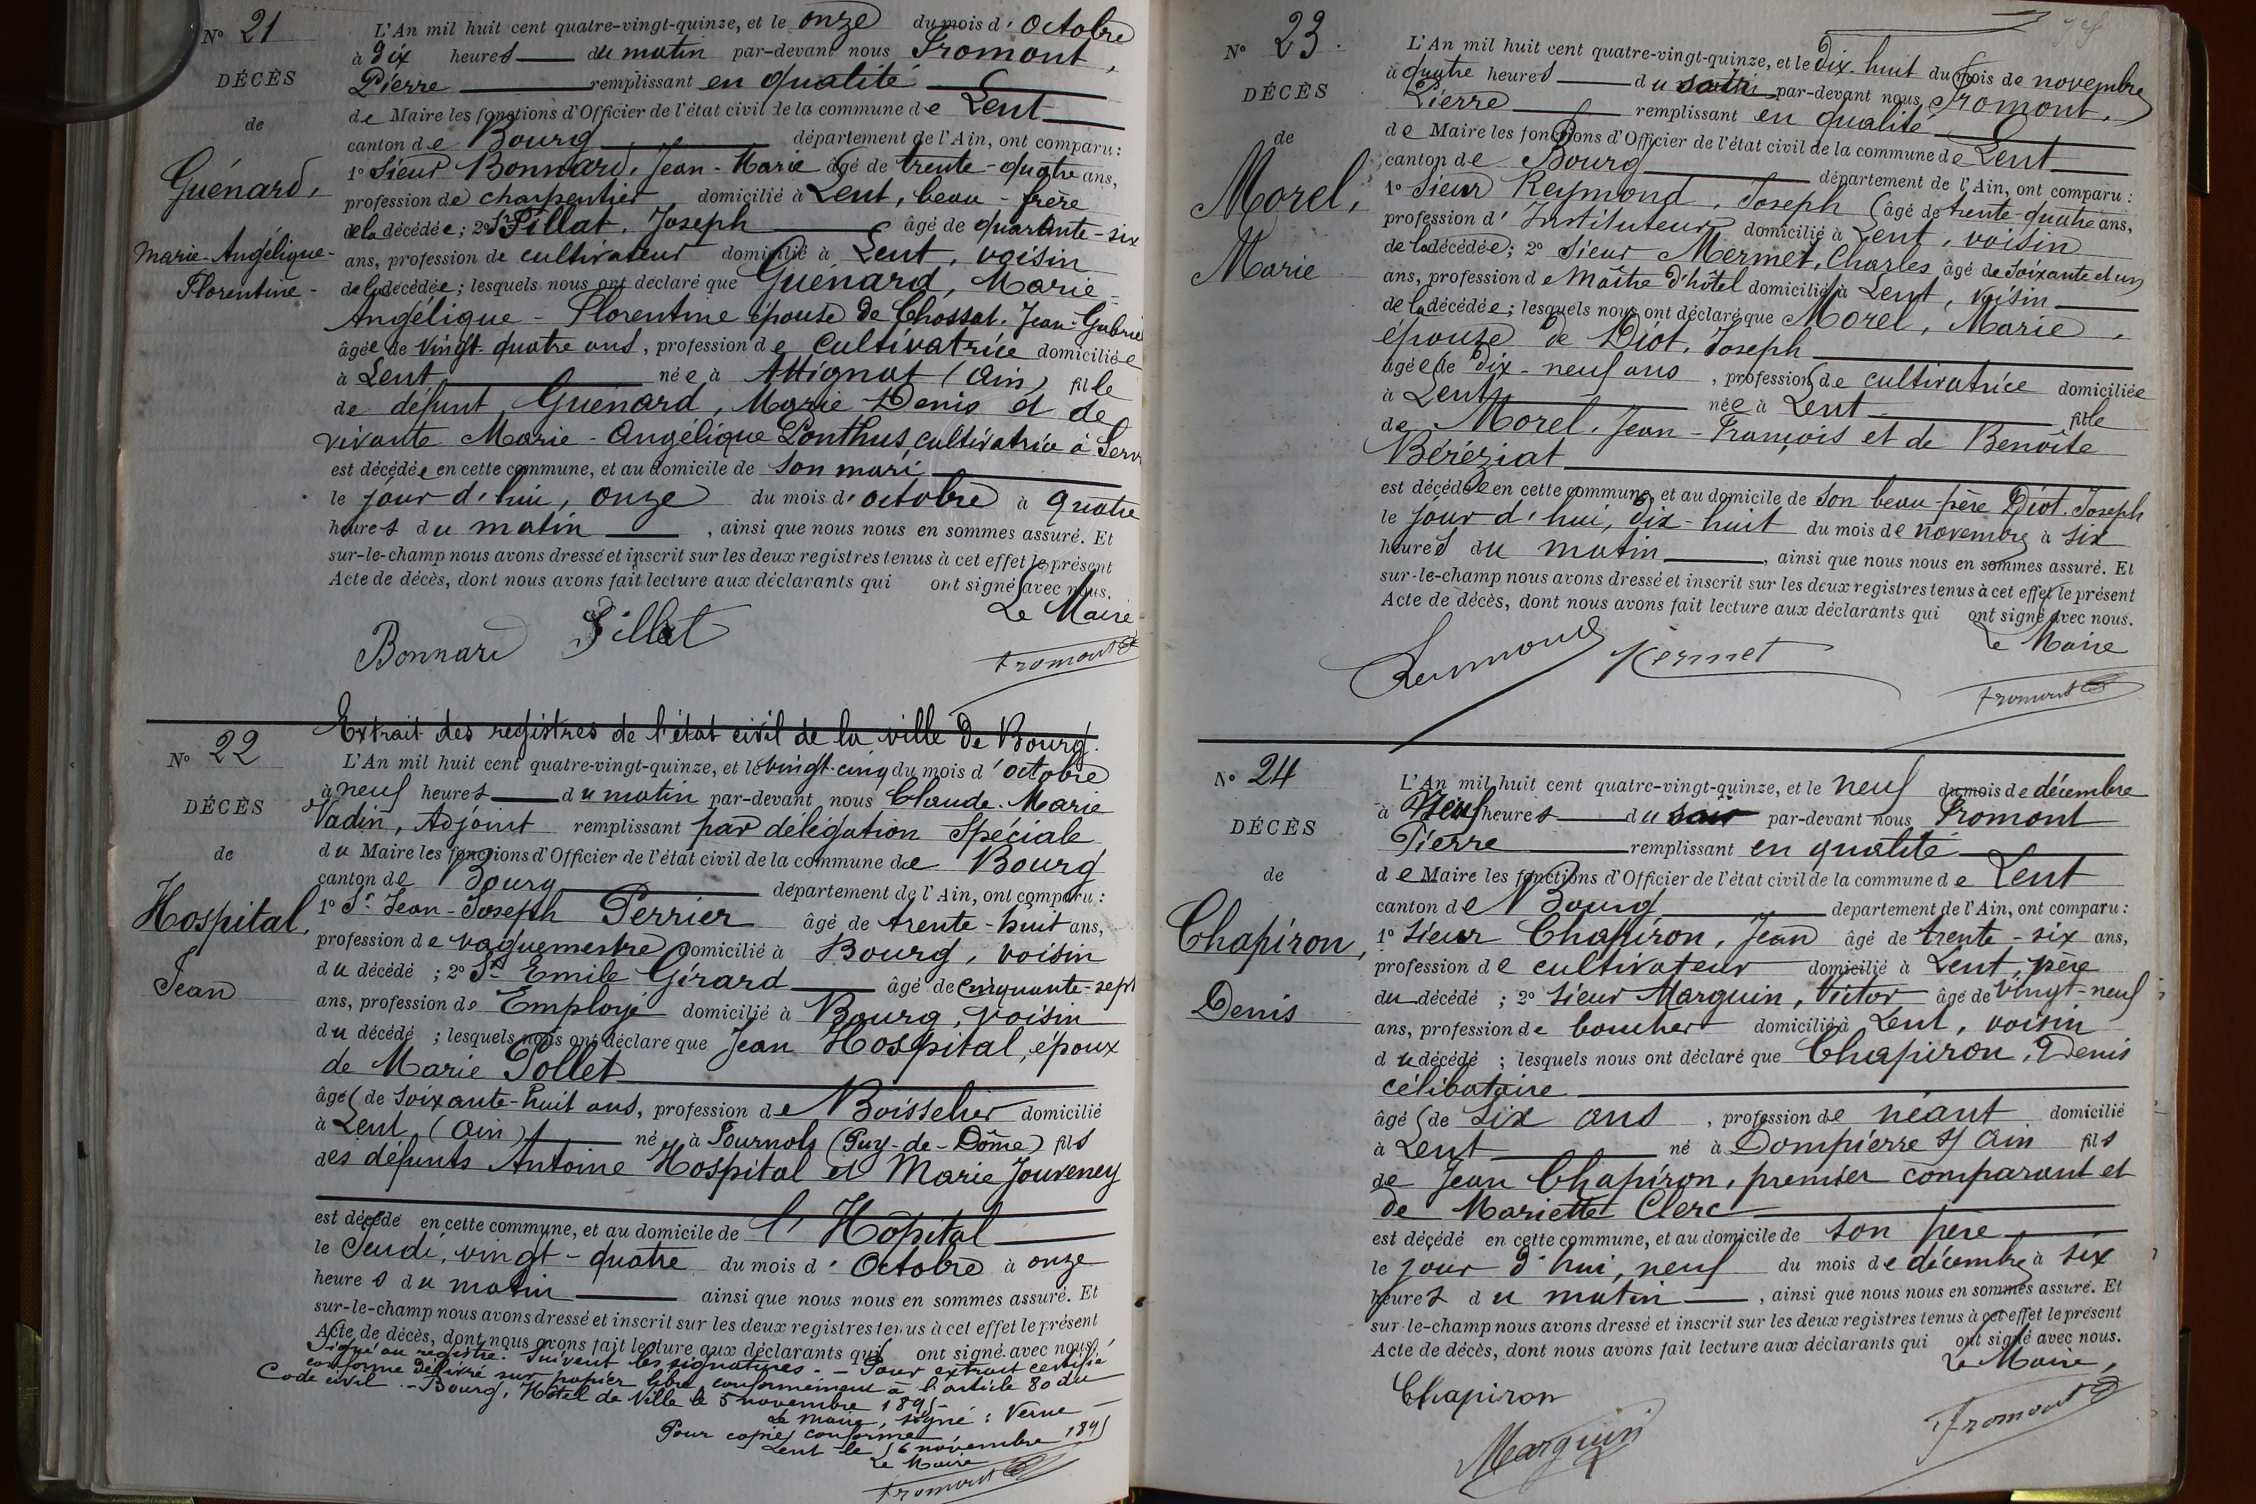 N° 21
DÉCÈS
de
Guénard,
Marie-Angélique-
Florentine-
L'An mil huit cent quatre-vingt-quinze, et le onze du mois d'Octobre
à dix heures du matin par-devant nous Fromont,
Pierre remplissant en qualité
de Maire les fonctions d'Officier de l'état civil de la commune de Lent
canton de Bourg département de l'Ain, ont comparu:
1° Sieur Bonnard, Jean-Marie âgé de trente-quatre ans,
profession de charpentier domicilié à Lent, beau-frère
de la décédée; 2° Sr Pillat, Joseph âgé de quarante-six
ans, profession de cultivateur domicilié à Lent, voisin
de la décédée; lesquels nous ont déclaré que Guénard, Marie-
Angélique-Florentine épouse de Chossat, Jean-Gabriel
âgée de vingt-quatre ans, profession de cultivatrice domiciliée
à Lent née à Attignat (Ain) fille
de défunt Guénard, Marie-Denis et de
vivante Marie-Angélique Ponthus, cultivatrice à
est décédée en cette commune, et au domicile de son mari
le jour d'hui, onze du mois d'octobre à quatre
heures du matin, ainsi que nous nous en sommes assuré. Et
sur-le-champ nous avons dressé et inscrit sur les deux registres tenus à cet effet le présent
Acte de décès, dont nous avons fait lecture aux déclarants qui ont signé avec nous.
Le Maire
Bonnard Pillat Fromont
N° 22
DÉCÈS
de
Hospital,
Jean
Extrait des registres de l'état civil de la ville de Bourg.
L'An mil huit cent quatre-vingt-quinze, et le vingt-cinq du mois d'octobre
à neuf heures du matin par-devant nous Claude-Marie
Vadin, Adjoint remplissant par délégation Spéciale
du Maire les fonctions d'Officier de l'état civil de la commune de Bourg
canton de Bourg département de l'Ain, ont comparu:
1° Sr Jean-Joseph Perrier âgé de trente-huit ans,
profession de vaguemestre domicilié à Bourg, voisin
du décédé; 2° Sr Emile Girard âgé de cinquante-sept
ans, profession de Employé domicilié à Bourg, voisin
du décédé; lesquels nous ont déclaré que Jean Hospital, époux
de Marie Pollet
âgé de soixante-huit ans, profession de Boisselier domicilié
à Lent (Ain) né à Tournols (Puy-de-Dôme) fils
des défunts Antoine Hospital et Marie Jouveney
est décédé en cette commune, et au domicile de l'Hôpital
le Jeudi, vingt-quatre du mois d'Octobre à onze
heures du matin ainsi que nous nous en sommes assuré. Et
sur-le-champ nous avons dressé et inscrit sur les deux registres tenus à cet effet le présent
Acte de décès, dont nous avons fait lecture aux déclarants qui ont signé avec nous.
Signé au registre. Suivent les signatures. - Pour extrait certifié
conforme délivré sur papier libre conformément à l'article 80 du
Code civil. - Bourg, Hôtel de Ville le 5 novembre 1895
Le Maire, signé: Verne
Pour copie conforme
Lent le 6 novembre 1895
Le Maire
Fromont
N° 23.
DÉCÈS
de
Morel,
Marie
L'An mil huit cent quatre-vingt-quinze, et le dix-huit du mois de novembre
à quatre heures du soir par-devant nous Fromont,
Pierre remplissant en qualité
de Maire les fonctions d'Officier de l'état civil de la commune de Lent
canton de Bourg département de l'Ain, ont comparu:
1° Sieur Reymond, Joseph âgé de trente-quatre ans,
profession d'Instituteur domicilié à Lent, voisin
de la décédée; 2° Sieur Mermet, Charles âgé de soixante et un
ans, profession de Maître d'hôtel domicilié à Lent, voisin
de la décédée; lesquels nous ont déclaré que Morel, Marie,
épouse de Diot, Joseph
âgée de dix-neuf ans, profession de cultivatrice domiciliée
à Lent née à Lent fille
de Morel, Jean-François et de Benoîte
Béréziat
est décédée en cette commune, et au domicile de son beau-père Diot, Joseph
le jour d'hui, dix-huit du mois de novembre à six
heures du matin, ainsi que nous nous en sommes assuré. Et
sur-le-champ nous avons dressé et inscrit sur les deux registres tenus à cet effet le présent
Acte de décès, dont nous avons fait lecture aux déclarants qui ont signé avec nous.
Le Maire
Reymond Mermet
Fromont
N° 24
DÉCÈS
de
Chapiron,
Denis
L'An mil huit cent quatre-vingt-quinze, et le neuf du mois de décembre
à Neuf heures du soir par-devant nous Fromont
Pierre remplissant en qualité
de Maire les fonctions d'Officier de l'état civil de la commune de Lent
canton de Bourg département de l'Ain, ont comparu:
1° Sieur Chapiron, Jean âgé de trente-six ans,
profession de cultivateur domicilié à Lent, père
du décédé; 2° Sieur Marguin, Victor âgé de vingt-neuf
ans, profession de boucher domicilié à Lent, voisin
du décédé; lesquels nous ont déclaré que Chapiron, Denis
célibataire
âgé de six ans, profession de néant domicilié
à Lent né à Dompierre s/ Ain fils
de Jean Chapiron, premier comparant et
de Mariette Clerc
est décédé en cette commune, et au domicile de son père
le jour d'hui, neuf du mois de décembre à six
heures du matin, ainsi que nous nous en sommes assuré. Et
sur-le-champ nous avons dressé et inscrit sur les deux registres tenus à cet effet le présent
Acte de décès, dont nous avons fait lecture aux déclarants qui ont signé avec nous.
Le Maire,
Chapiron
Marguin Fromont